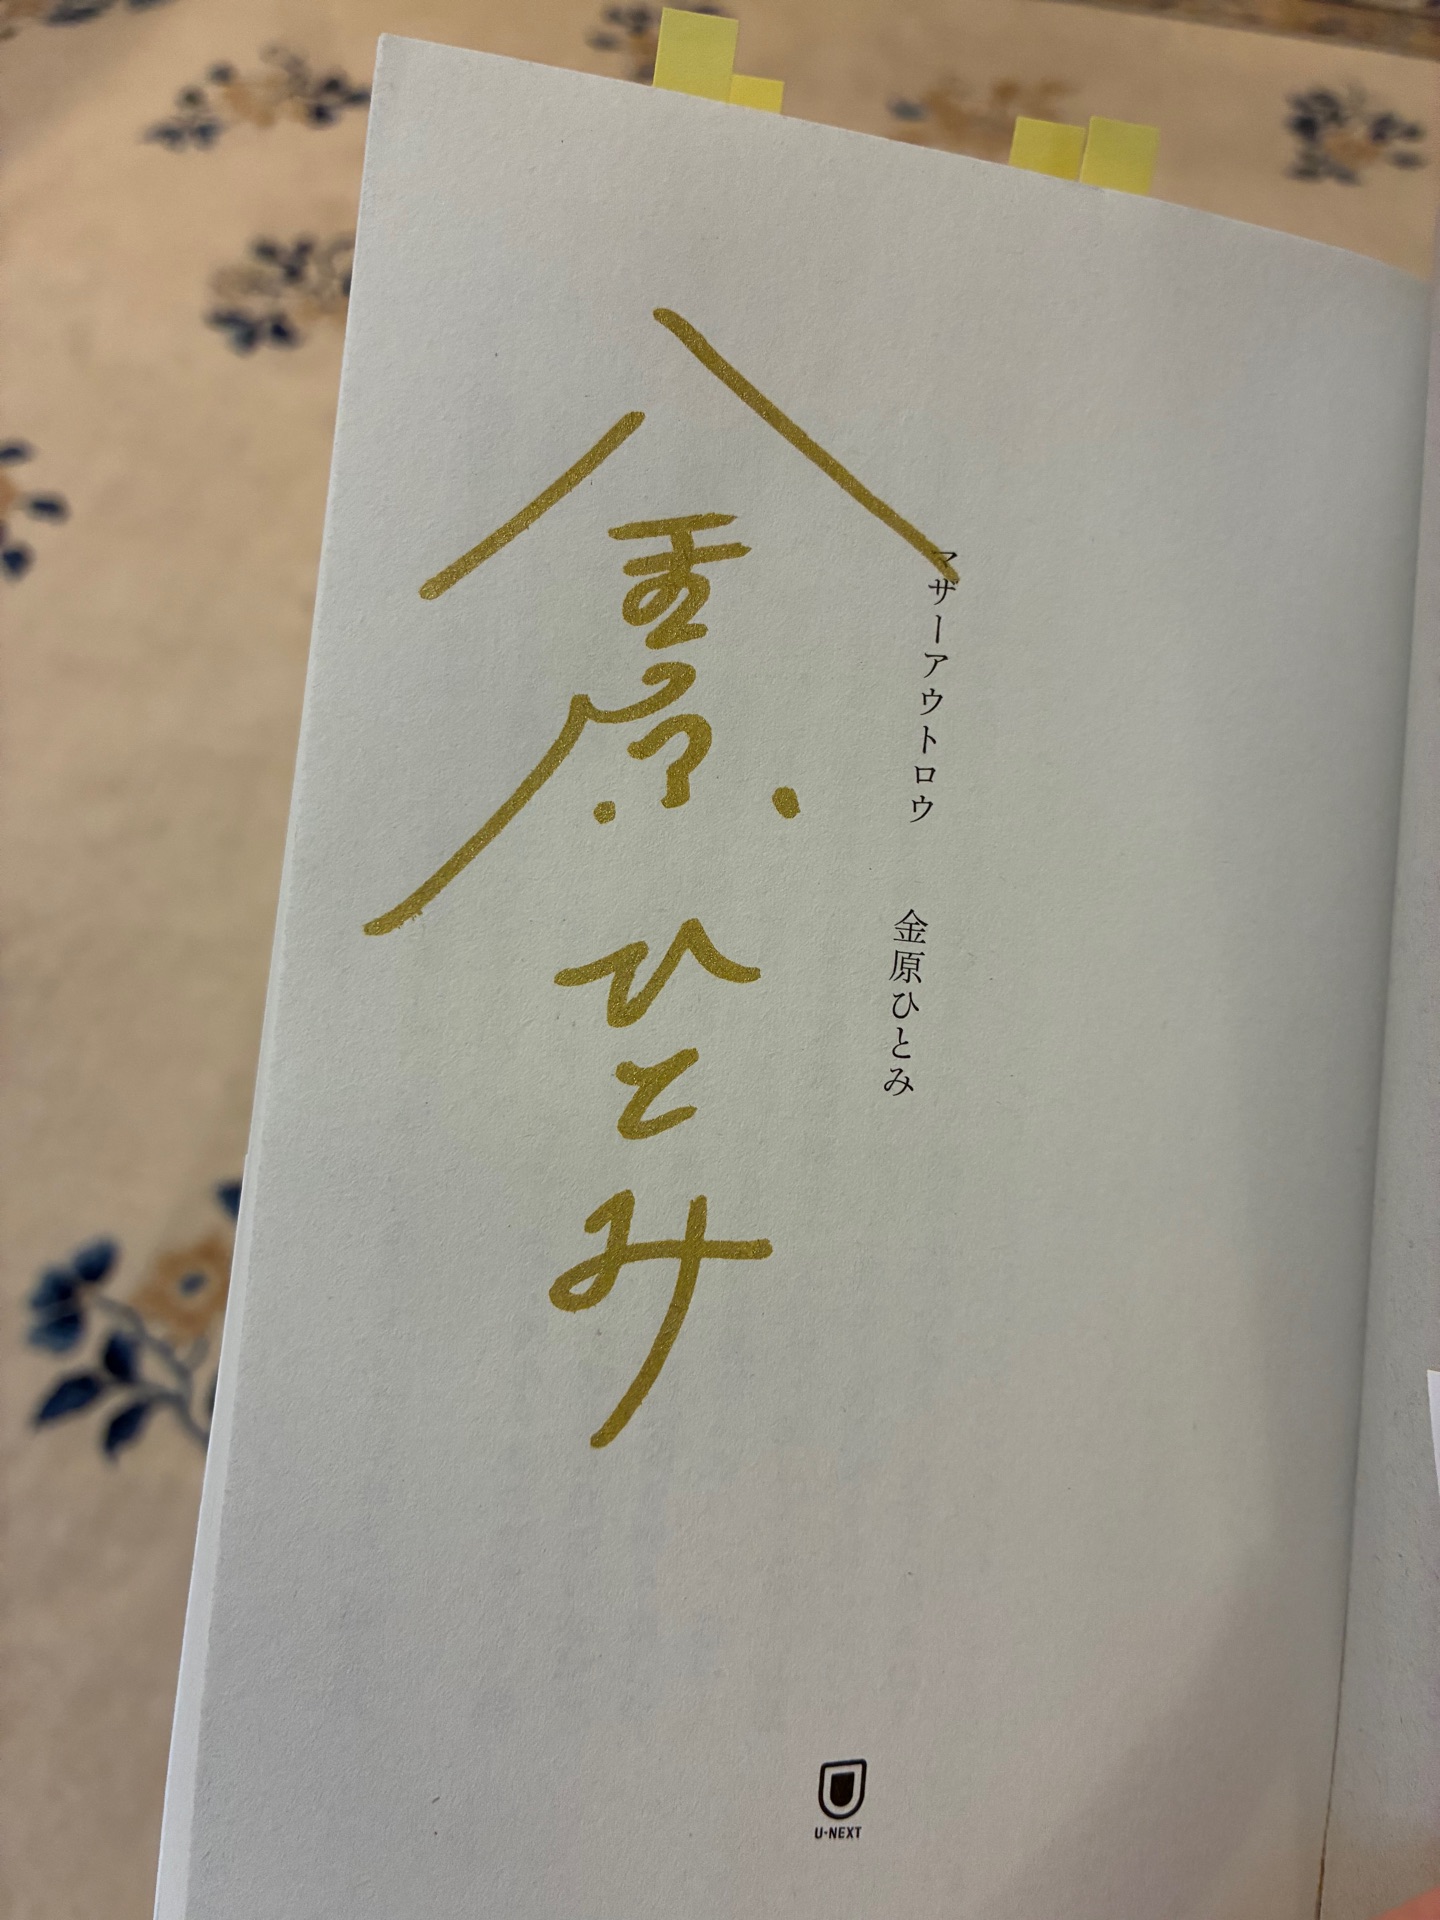 マザーアウトロウ
金原ひとみ
金原ひとみ
U-NEXT